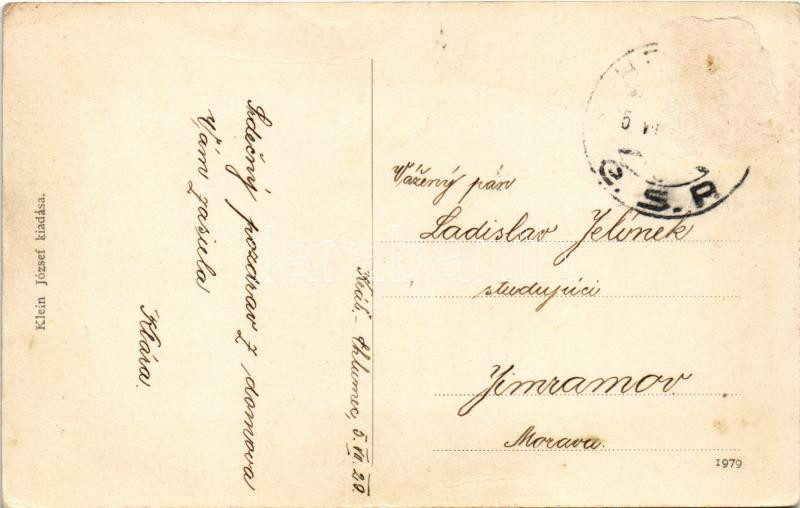 Klein József kiadása.
Srdečný pozdrav z domova
Vám zasila
Klára.
Král.-Chlumec, 5. VII. 20.
Vážený pán
Ladislav Jelínek
studujúci
Jimramov.
Morava.
1979
5 VII
Č.S.R.
darabanth